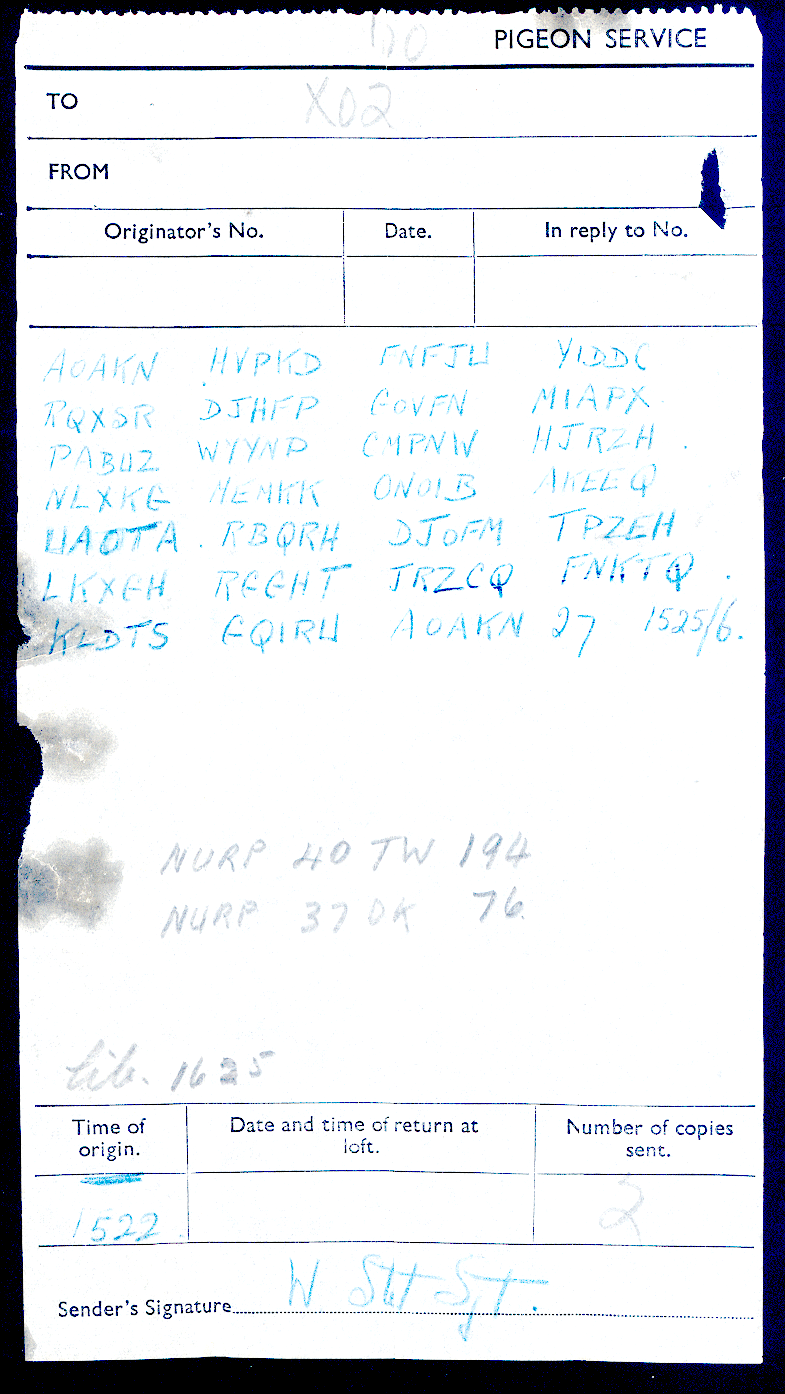 PIGEON SERVICE
TO XO2
FROM
Originator's No. Date. In reply to No.
AOAKN HVPKD FNFJU YIDDC
RQXSR DJHFP GOVFN MIAPX
PABUZ WYYNP CMPNW HJRZH
NLXKG MEMKK ONOIB AKEEQ
UAOTA RBQRH DJOFM TPZEH
LKXGH RGGHT JRZCQ FNKTQ
KLDTS GQIRU AOAKN 27 1525/6.
NURP 40 TW 194
NURP 37 DK 76
lib. 1625
Time of origin. Date and time of return at loft. Number of copies sent.
1522 2
Sender's Signature W Stot Sjt.